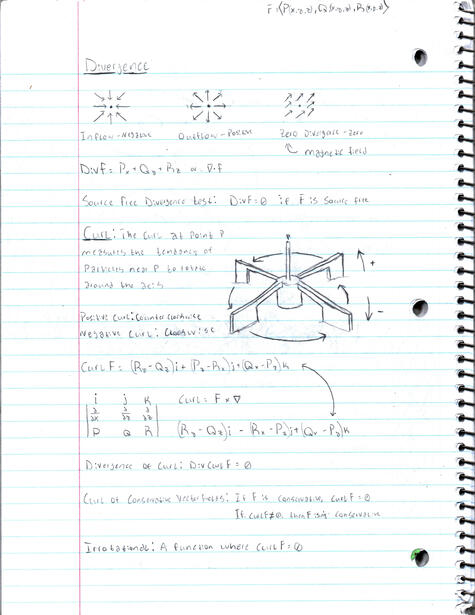 F = ⟨P(x,y,z), Q(x,y,z), R(x,y,z)⟩
Divergence
Inflow-Negative Outflow-Positive Zero Divergence-Zero
magnetic field
DivF = Px + Qy + Rz or ∇·F
Source Free Divergence test: DivF=0 if F is source free
Curl: The curl at Point P
measures the tendency of
Particles near P to rotate
around the axis
+
-
Positive Curl: Counterclockwise
Negative Curl: Clockwise
Curl F = (Ry-Qz)i + (Pz-Rx)j + (Qx-Py)k
i j k
∂/∂x ∂/∂y ∂/∂z
P Q R
Curl = F × ∇
(Ry-Qz)i - (Rx-Pz)j + (Qx-Py)k
Divergence of Curl: Div Curl F = 0
Curl of Conservative Vector Fields: If F is conservative, Curl F = 0
If curl F≠0, then F is conservative
Irrotational: A function where Curl F = 0